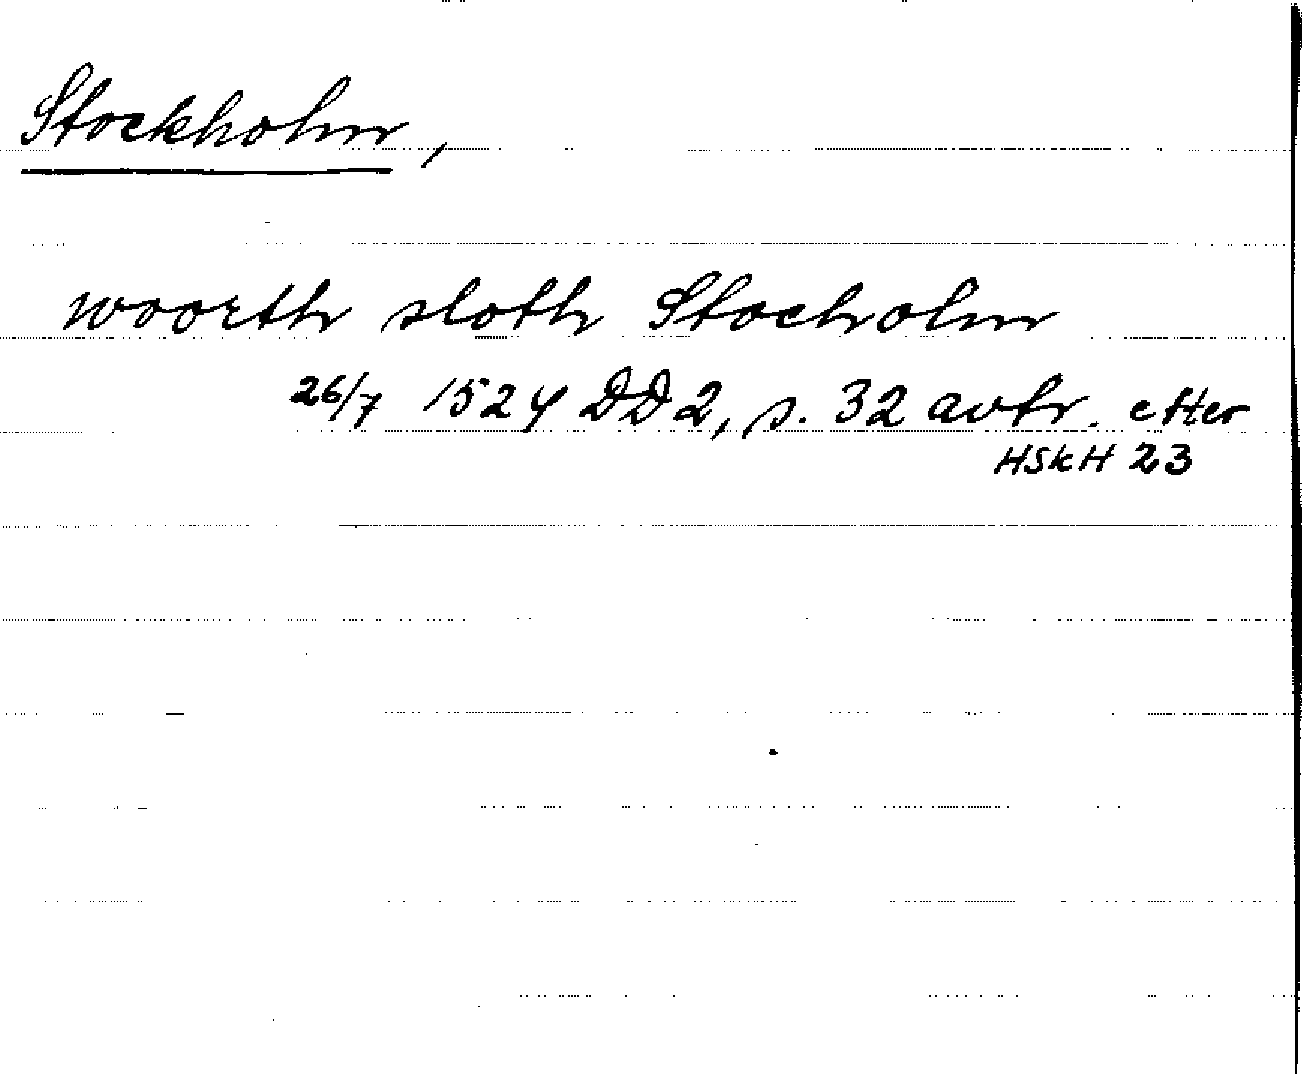 Stockholm,
woorth sloth Stocholm
26/7 1524 DD2, s. 32 avtr. efter
HSkH 23